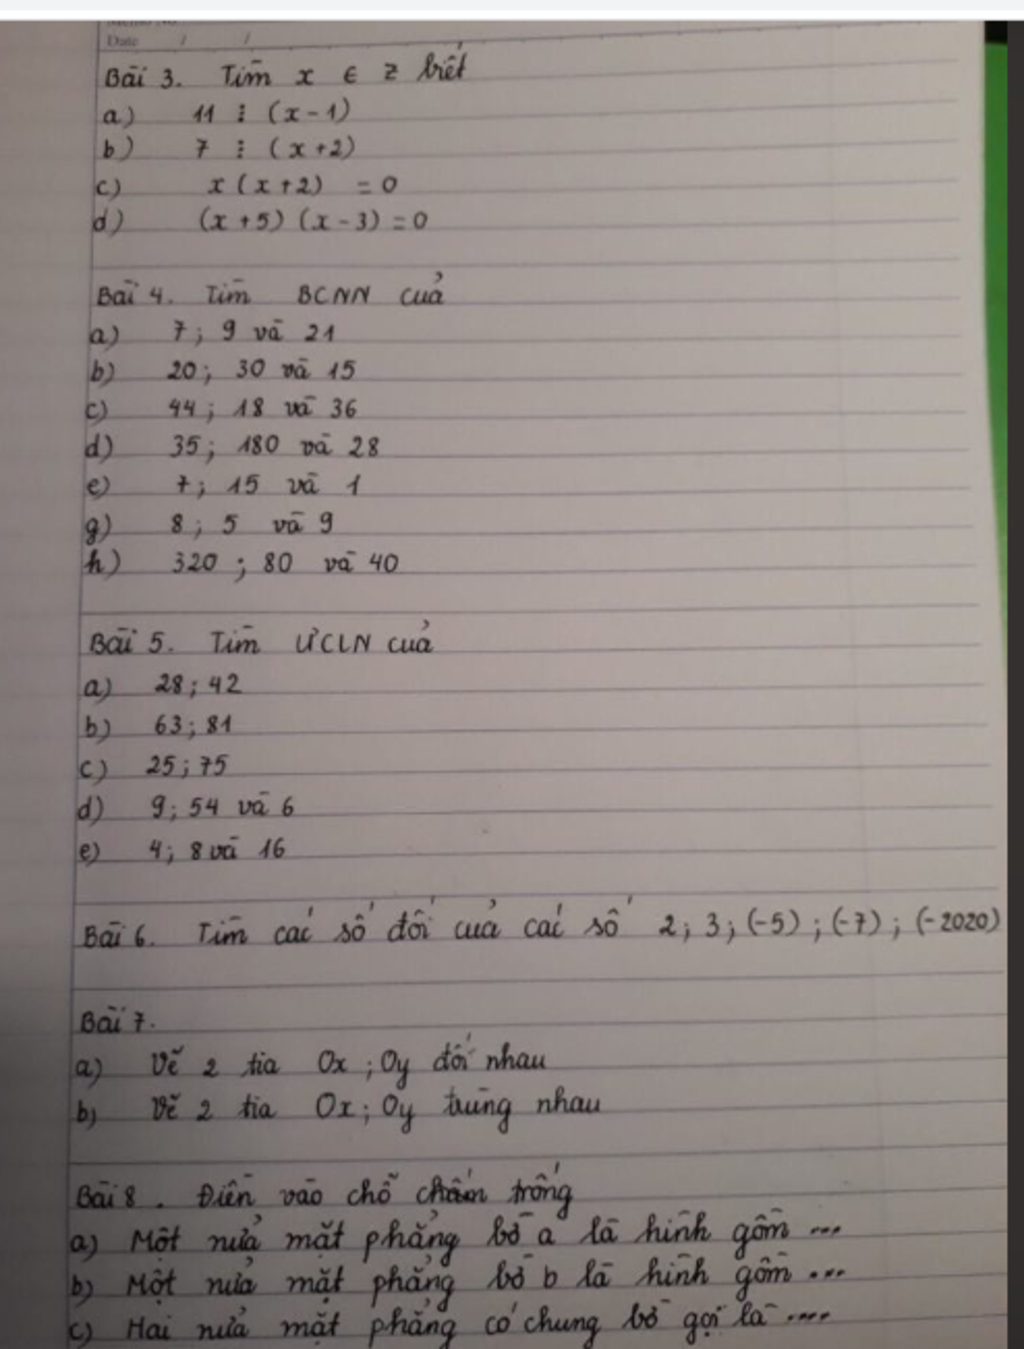 Date / /
Bài 3. Tìm x ∈ Z biết
a) 11 ⋮ (x-1)
b) 7 ⋮ (x+2)
c) x(x+2) = 0
d) (x+5)(x-3) = 0
Bài 4. Tìm BCNN của
a) 7; 9 và 21
b) 20; 30 và 15
c) 44; 18 và 36
d) 35; 180 và 28
e) 7; 15 và 1
g) 8; 5 và 9
h) 320; 80 và 40
Bài 5. Tìm ƯCLN của
a) 28; 42
b) 63; 81
c) 25; 75
d) 9; 54 và 6
e) 4; 8 và 16
Bài 6. Tìm các số đối của các số 2; 3; (-5); (-7); (-2020)
Bài 7.
a) Vẽ 2 tia Ox; Oy đối nhau
b) Vẽ 2 tia Ox; Oy trùng nhau
Bài 8. Điền vào chỗ chấm trống
a) Một nửa mặt phẳng bờ a là hình gồm ...
b) Một nửa mặt phẳng bờ b là hình gồm ...
c) Hai nửa mặt phẳng có chung bờ gọi là ....